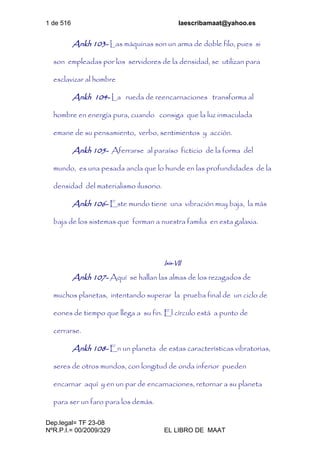 1 de 516 laescribamaat@yahoo.es
Ankh 103- Las máquinas son un arma de doble filo, pues si
son empleadas por los servidores de la densidad, se utilizan para
esclavizar al hombre
Ankh 104- La rueda de reencarnaciones transforma al
hombre en energía pura, cuando consiga que la luz inmaculada
emane de su pensamiento, verbo, sentimientos y acción.
Ankh 105- Aferrarse al paraíso ficticio de la forma del
mundo, es una pesada ancla que lo hunde en las profundidades de la
densidad del materialismo ilusorio.
Ankh 106- Este mundo tiene una vibración muy baja, la más
baja de los sistemas que forman a nuestra familia en esta galaxia.
Inn-VII
Ankh 107- Aquí se hallan las almas de los rezagados de
muchos planetas, intentando superar la prueba final de un ciclo de
eones de tiempo que llega a su fin. El círculo está a punto de
cerrarse.
Ankh 108- En un planeta de estas características vibratorias,
seres de otros mundos, con longitud de onda inferior pueden
encarnar aquí y en un par de encarnaciones, retornar a su planeta
para ser un faro para los demás.
Dep.legal= TF 23-08
NºR.P.I.= 00/2009/329 EL LIBRO DE MAAT